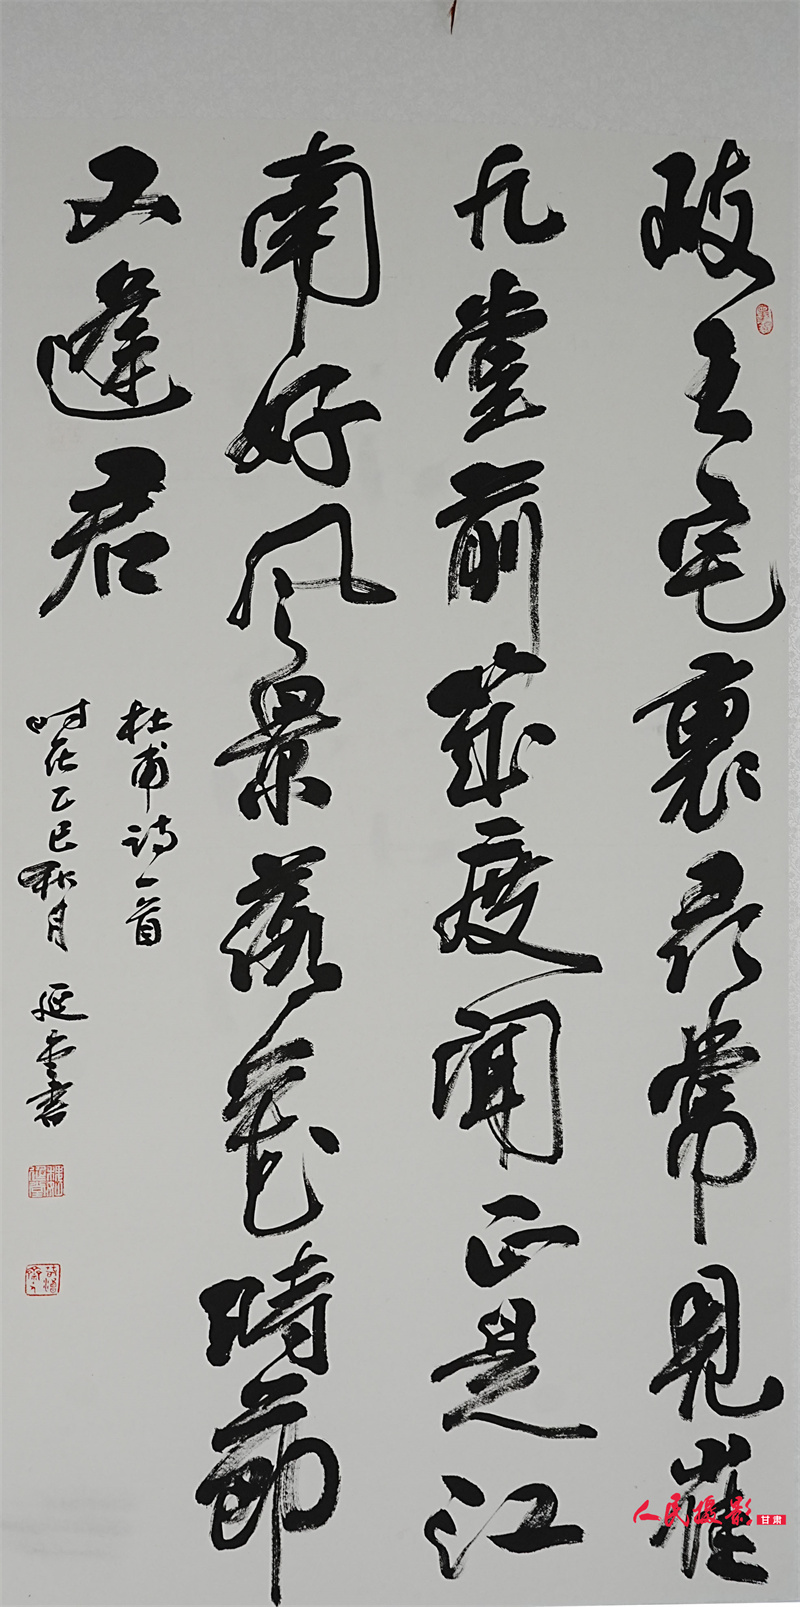 岐王宅裏尋常見崔
九堂前幾度聞正是江
南好風景落花時節
又逢君
杜甫詩一首
时在乙巳秋月 延雲書
人民摄影 甘肃